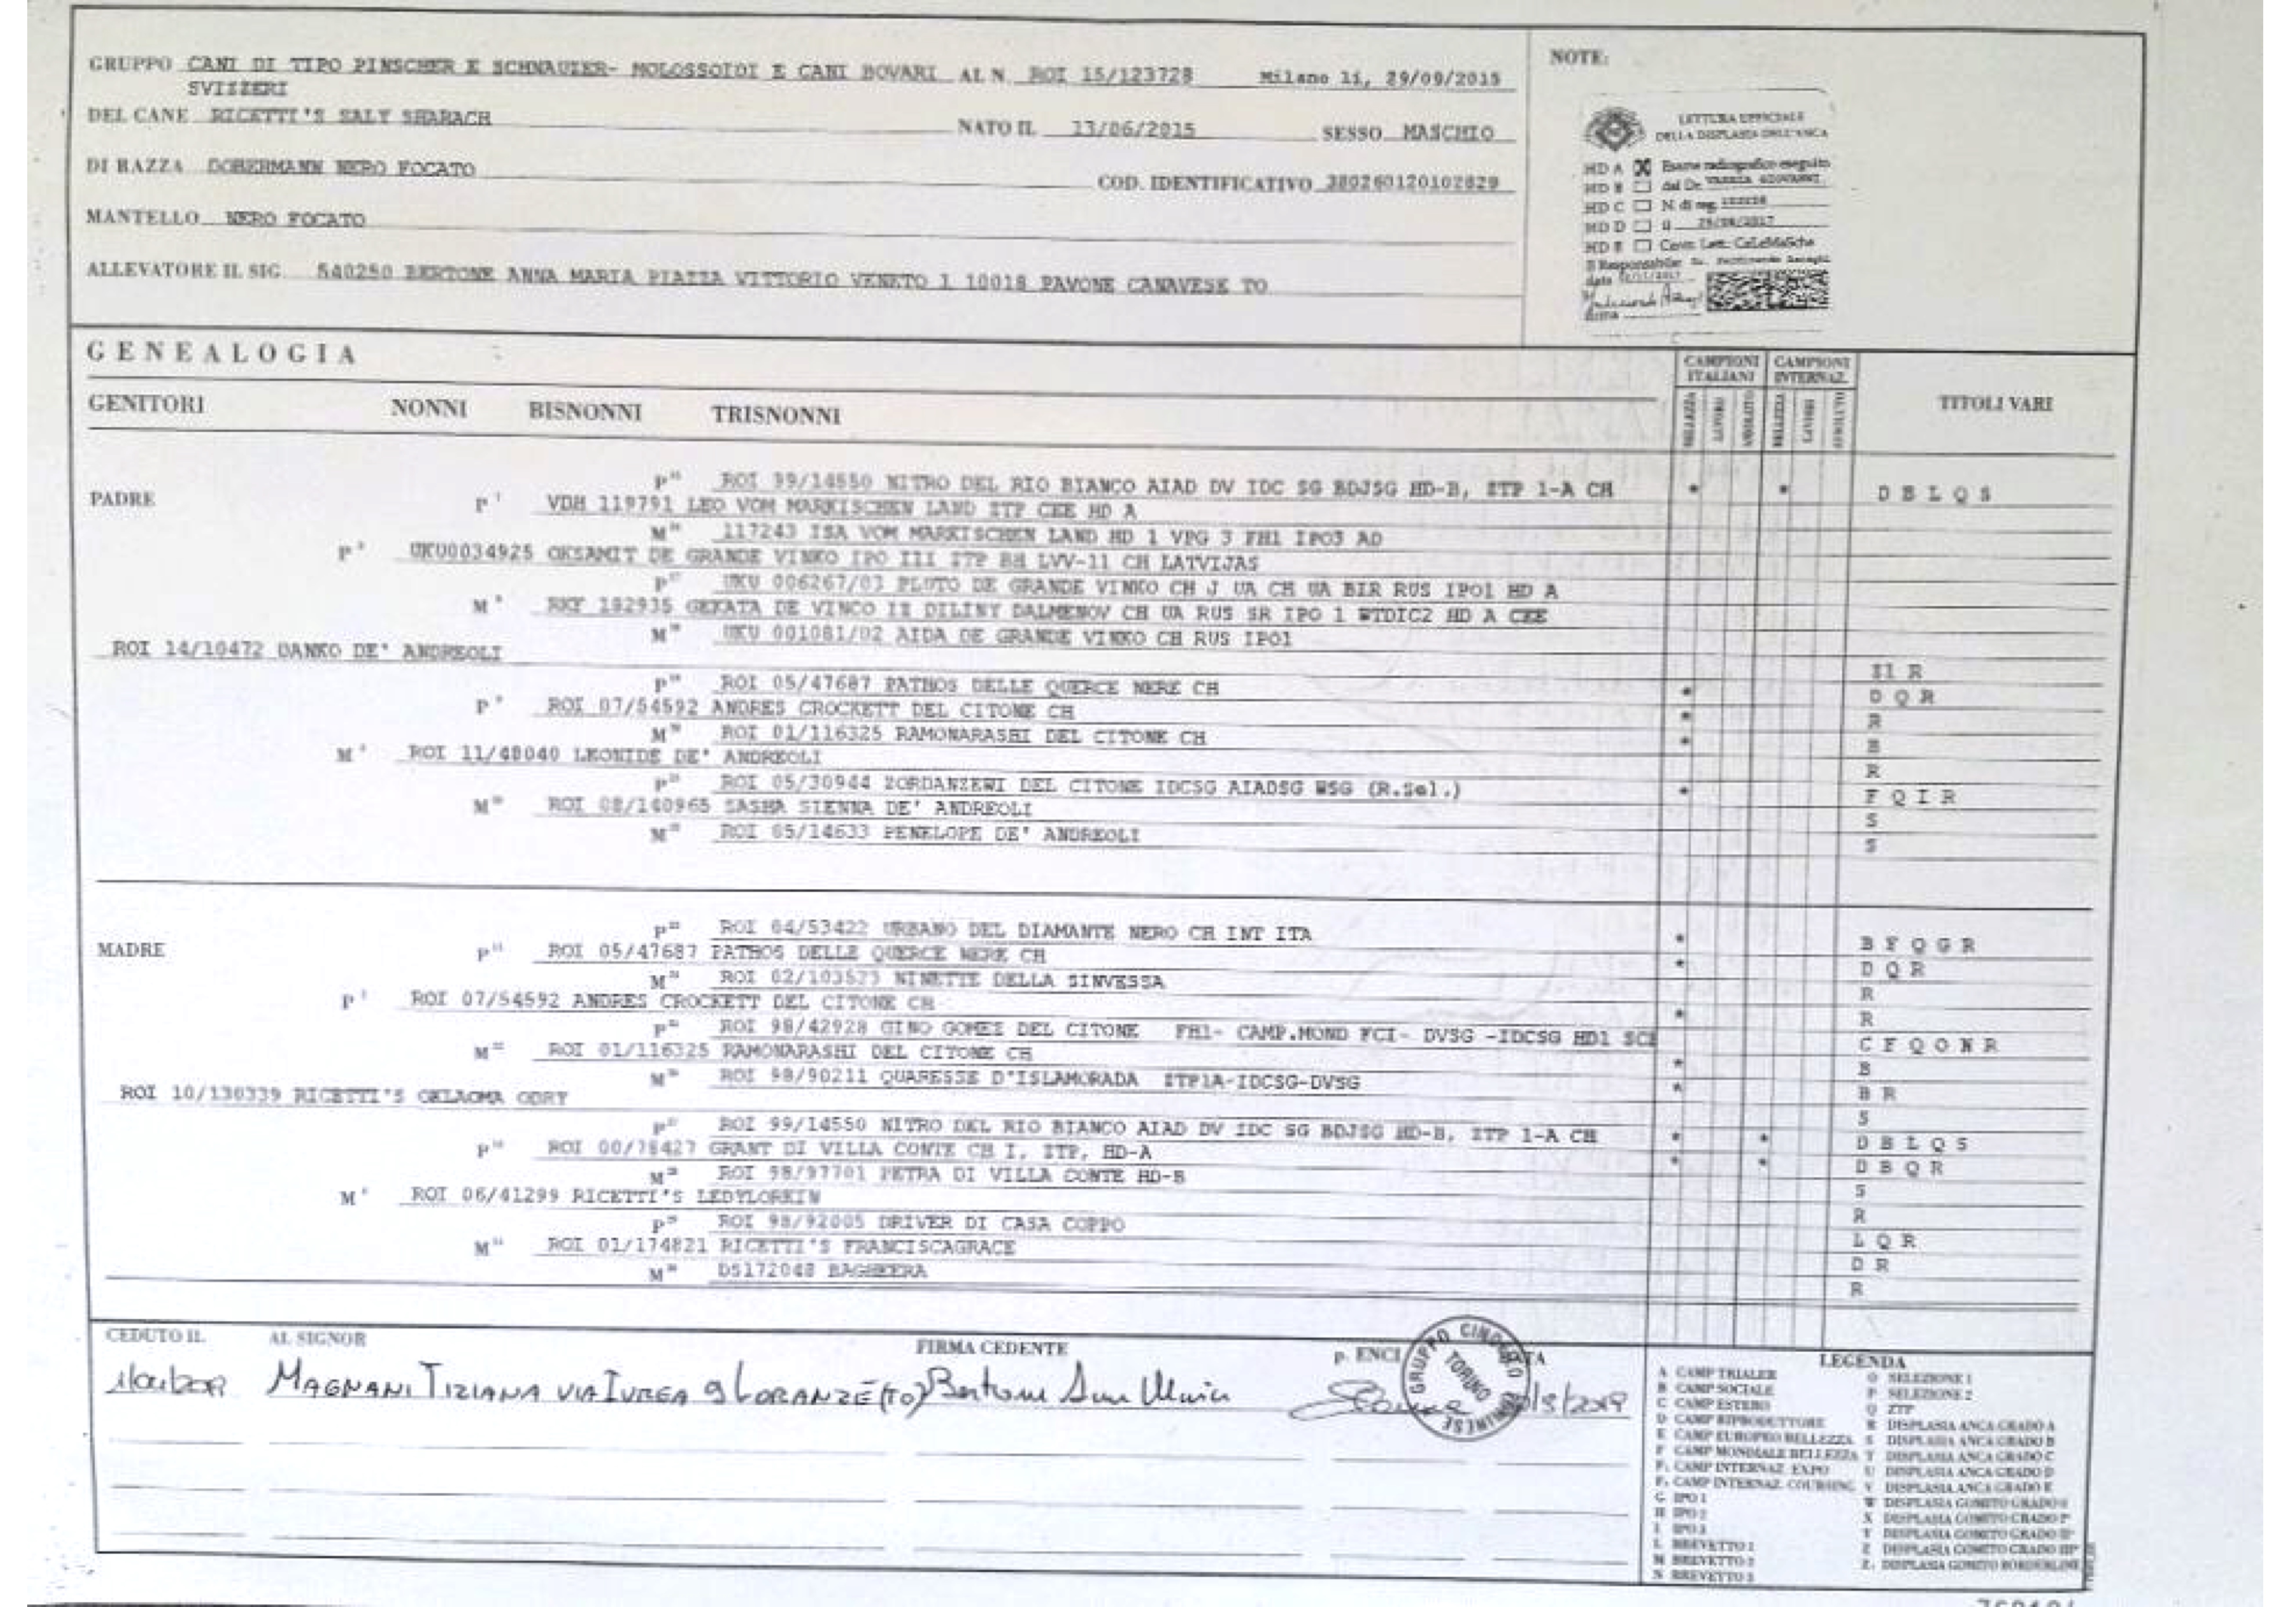 GRUPPO CANI DI TIPO PINSCHER E SCHNAUZER- MOLOSSOIDI E CANI BOVARI AL N. ROI 15/123728 Milano li, 29/09/2015
SVIZZERI
DEL CANE RICETTI'S SALY SHARACH NATO IL 13/06/2015 SESSO MASCHIO
DI RAZZA DOBERMANN NERO FOCATO COD. IDENTIFICATIVO 380260120102829
MANTELLO NERO FOCATO
ALLEVATORE IL SIG. 540250 BERTONE ANNA MARIA PIAZZA VITTORIO VENETO 1 10018 PAVONE CANAVESE TO
NOTE:
LETTURA UFFICIALE
DELLA DISPLASIA DELL'ANCA
HD A X Esame radiografico eseguito
HD B dal Dr. GIOVANNI
HD C N. di reg.
HD D il 29/08/2017
HD E Centr. Lett. CeLeMaSche
Il Responsabile:
data
firma
GENEALOGIA
CAMPIONI ITALIANI
CAMPIONI INTERNAZ.
TITOLI VARI
GENITORI NONNI BISNONNI TRISNONNI
BELLEZZA LAVORO ASSOLUTO BELLEZZA LAVORO ASSOLUTO
P ROI 99/14550 NITRO DEL RIO BIANCO AIAD DV IDC SG BDJSG HD-B, ZTP 1-A CH * * D B L Q S
PADRE P VDH 119791 LEO VOM MARKISCHEN LAND ZTP CEE HD A
M 117243 ISA VOM MARKISCHEN LAND HD 1 VPG 3 FH1 IPO3 AD
P UKU0034925 OKSAMIT DE GRANDE VINKO IPO III ZTP BH LVV-11 CH LATVIJAS
P UKU 006267/03 PLUTO DE GRANDE VINKO CH J UA CH UA BIR RUS IPO1 HD A
M RKF 182935 GEKATA DE VINCO IZ DILINY DALMENOV CH UA RUS SR IPO 1 WTDIC2 HD A CEE
M UKU 001081/02 AIDA DE GRANDE VINKO CH RUS IPO1
ROI 14/10472 DANKO DE' ANDREOLI Z1 R
P ROI 05/47687 PATHOS DELLE QUERCE NERE CH * D Q R
P ROI 07/54592 ANDRES CROCKETT DEL CITONE CH * R
M ROI 01/116325 RAMONARASHI DEL CITONE CH * B
M ROI 11/48040 LEONIDE DE' ANDREOLI R
P ROI 05/30944 ZORDANZEWI DEL CITONE IDCSG AIADSG WSG (R.Sel.) * F Q I R
M ROI 08/140965 SASHA SIENNA DE' ANDREOLI S
M ROI 05/14633 PENELOPE DE' ANDREOLI S
P ROI 04/53422 URBANO DEL DIAMANTE NERO CH INT ITA * B F Q G R
MADRE P ROI 05/47687 PATHOS DELLE QUERCE NERE CH * D Q R
M ROI 02/103573 NINETTE DELLA SINVESSA R
P ROI 07/54592 ANDRES CROCKETT DEL CITONE CH * R
P ROI 98/42928 GINO GOMEZ DEL CITONE FH1- CAMP.MOND FCI- DVSG -IDCSG HD1 SCH C F Q O N R
M ROI 01/116325 RAMONARASHI DEL CITONE CH * B
M ROI 98/90211 QUARESSE D'ISLAMORADA ZTP1A-IDCSG-DVSG * B R
ROI 10/130339 RICETTI'S OKLAOMA ODRY S
P ROI 99/14550 NITRO DEL RIO BIANCO AIAD DV IDC SG BDJSG HD-B, ZTP 1-A CH * * D B L Q S
P ROI 00/78427 GRANT DI VILLA CONTE CH I, ZTP, HD-A * * D B Q R
M ROI 98/97701 PETRA DI VILLA CONTE HD-B S
M ROI 06/41299 RICETTI'S LEDYLORKIN R
P ROI 98/92005 DRIVER DI CASA COPPO L Q R
M ROI 01/174821 RICETTI'S FRANCISCAGRACE D R
M DS172048 BAGHEERA R
CEDUTO IL AL SIGNOR FIRMA CEDENTE p. ENCI DATA
MAGNANI TIZIANA VIA IVREA 9 LORANZÉ (TO) Bertone Anna Maria
GRUPPO CINOFILO TORINESE
TORINO
LEGENDA
A CAMP TRIALER
B CAMP SOCIALE
C CAMP ESTERO
D CAMP RIPRODUTTORE
E CAMP EUROPEO BELLEZZA
F CAMP MONDIALE BELLEZZA
F. CAMP INTERNAZ. EXPO
F. CAMP INTERNAZ. COURSING
G IPO 1
H IPO 2
I IPO 3
L BREVETTO 1
M BREVETTO 2
N BREVETTO 3
O SELEZIONE 1
P SELEZIONE 2
Q ZTP
R DISPLASIA ANCA GRADO A
S DISPLASIA ANCA GRADO B
T DISPLASIA ANCA GRADO C
U DISPLASIA ANCA GRADO D
V DISPLASIA ANCA GRADO E
W DISPLASIA GOMITO GRADO 0
X DISPLASIA GOMITO GRADO I°
Y DISPLASIA GOMITO GRADO II°
Z DISPLASIA GOMITO GRADO III°
Z. DISPLASIA GOMITO BORDERLINE